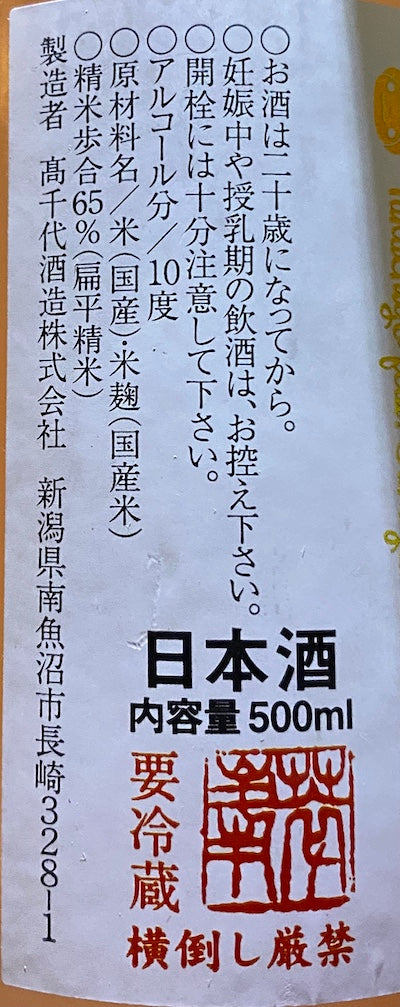 ○お酒は二十歳になってから。
○妊娠中や授乳期の飲酒は、お控え下さい。
○開栓には十分注意して下さい。
○アルコール分/10度
○原材料名/米(国産)・米麹(国産米)
○精米歩合65%(扁平精米)
製造者 髙千代酒造株式会社 新潟県南魚沼市長崎328-1
日本酒
内容量 500ml
要冷蔵
横倒し厳禁